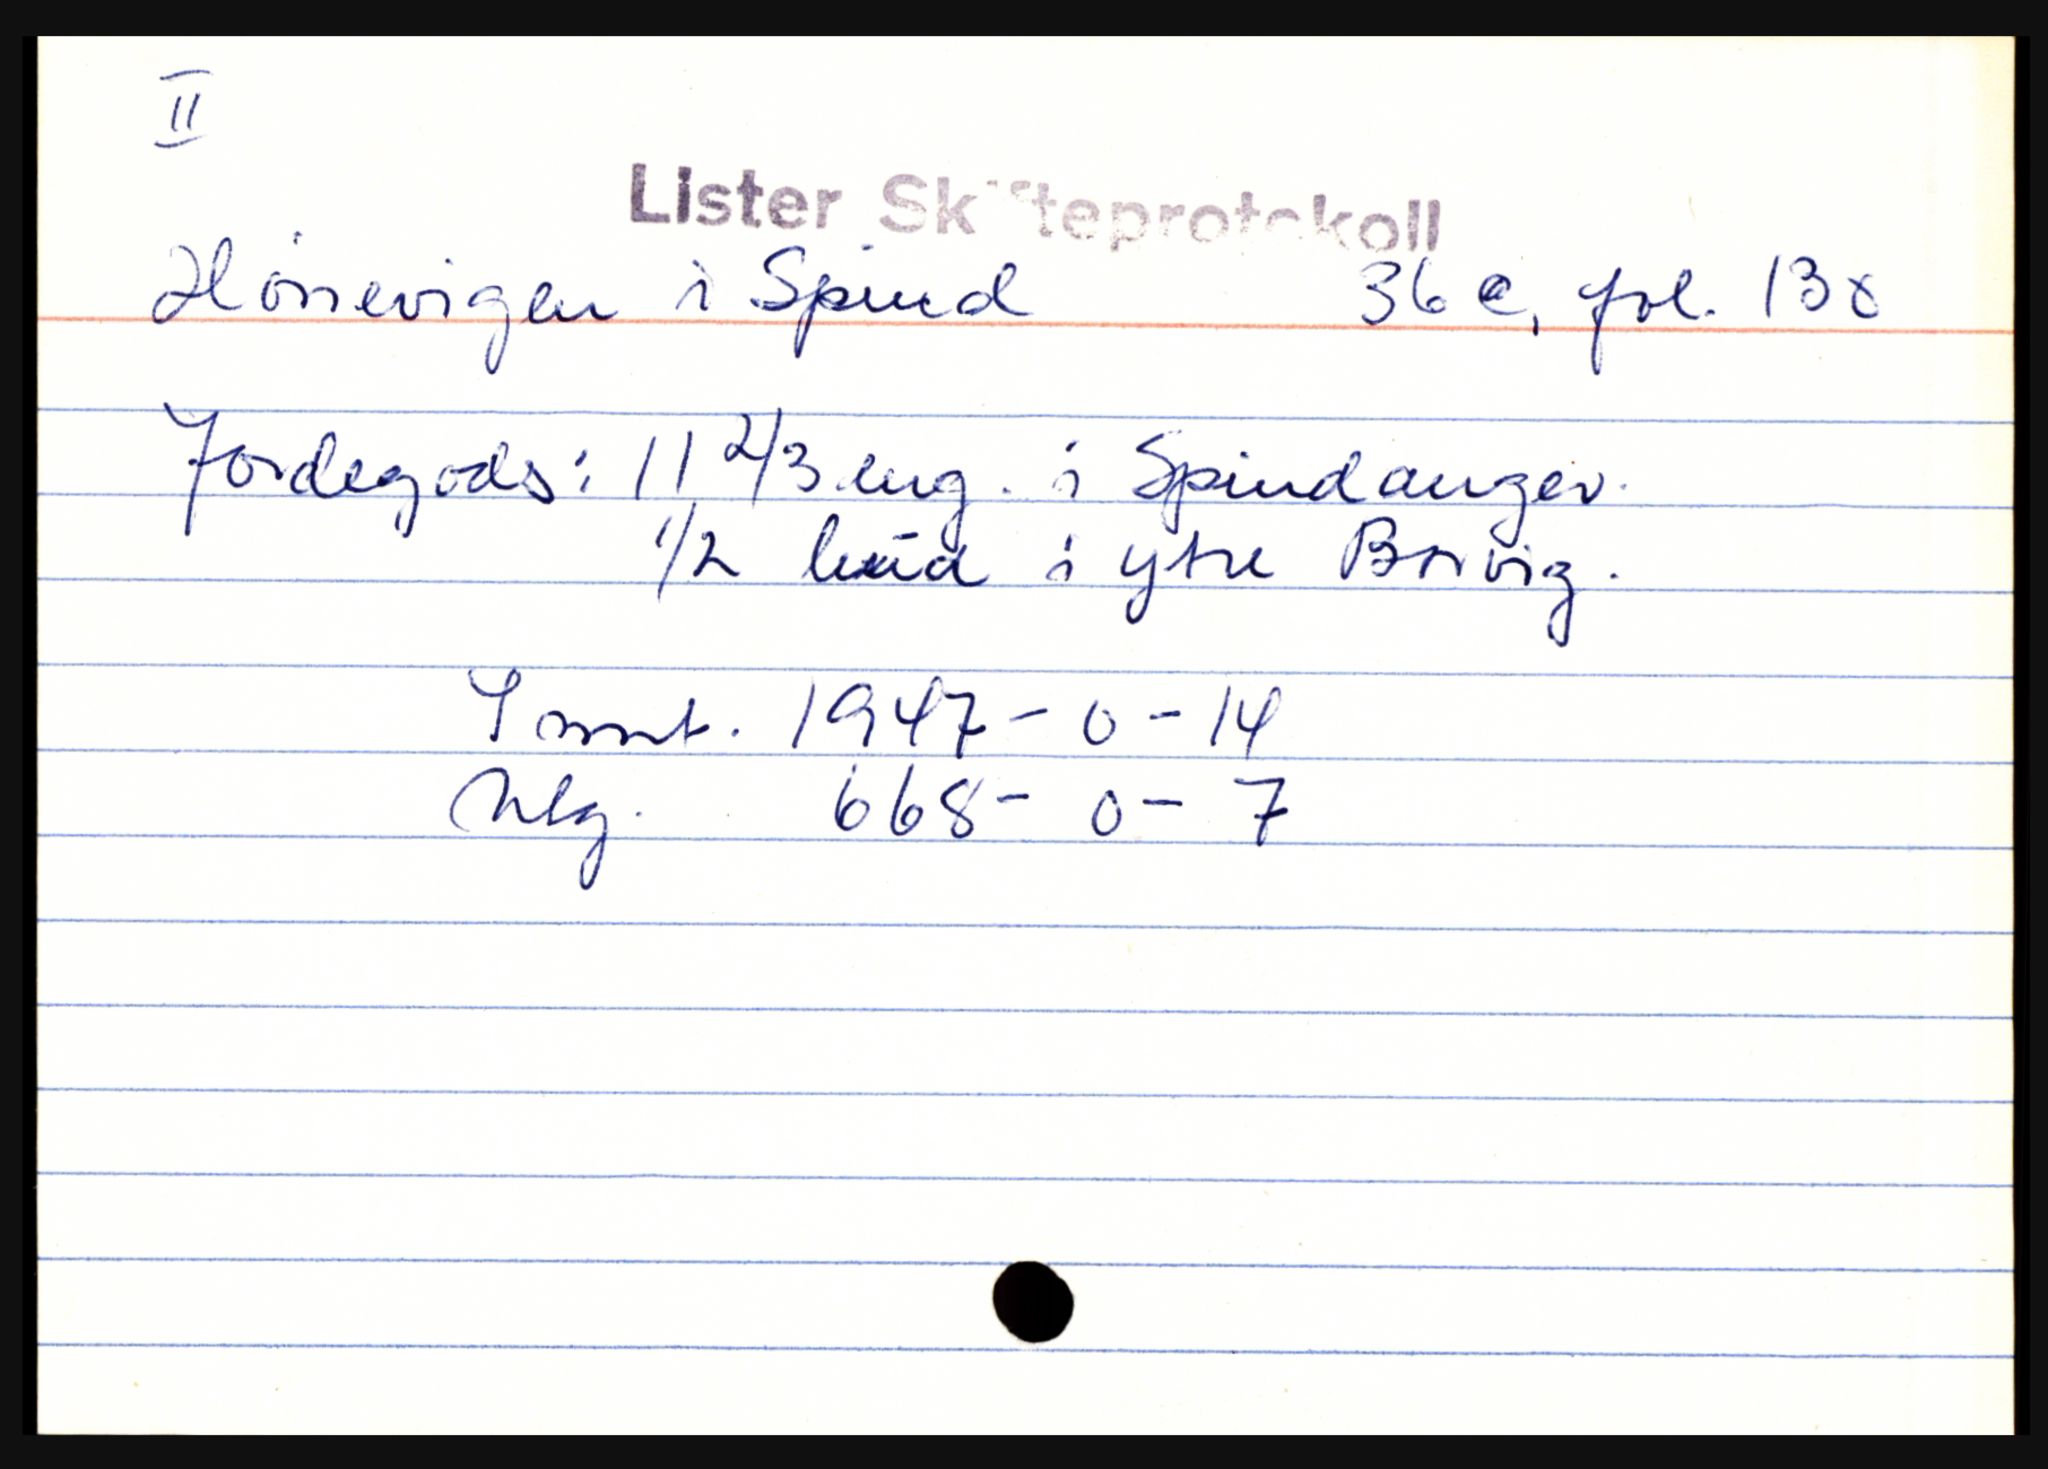 II
Lister Skifteprotokoll
Hörrevigen i Spind 36 c, fol. 138
Jordegods: 11 2/3 eng. i Spindanger.
1/2 hud i ytre Borvig.
S mnt. 1947 - 0 - 14
Utg. 668 - 0 - 7